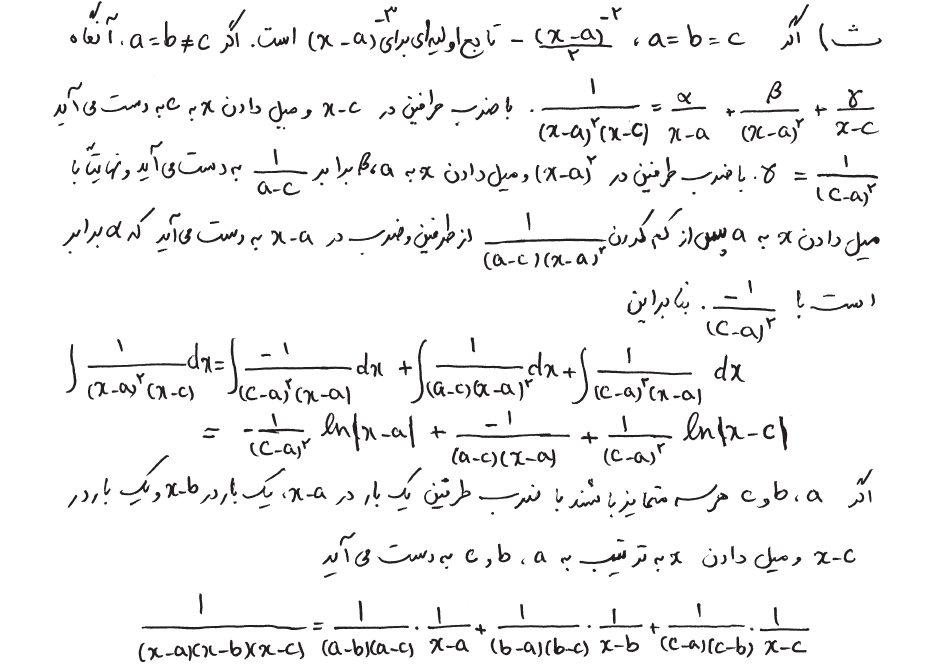 ث) اگر a=b=c ، -(x-a)^{-۲}/۲ تابع اولیه‌ای برای (x-a)^{-۳} است. اگر a=b≠c، آنگاه
۱/((x-a)^۲(x-c)) = α/(x-a) + β/(x-a)^۲ + γ/(x-c) . با ضرب طرفین در x-c و میل دادن x به c به دست می‌آید
γ = ۱/(c-a)^۲ . با ضرب طرفین در (x-a)^۲ و میل دادن x به a، β برابر ۱/(a-c) به دست می‌آید و نهایتاً با
میل دادن x به a پس از کم کردن ۱/((a-c)(x-a)^۲) از طرفین و ضرب در x-a به دست می‌آید که α برابر
است با -۱/(c-a)^۲ . بنابراین
∫ ۱/((x-a)^۲(x-c)) dx = ∫ -۱/((c-a)^۲(x-a)) dx + ∫ ۱/((a-c)(x-a)^۲) dx + ∫ ۱/((c-a)^۲(x-a)) dx
= -۱/(c-a)^۲ ln|x-a| + -۱/((a-c)(x-a)) + ۱/(c-a)^۲ ln|x-c|
اگر a، b و c هر سه متمایز باشند با ضرب طرفین یک بار در x-a، یک بار در x-b و یک بار در
x-c و میل دادن x به ترتیب به a، b و c به دست می‌آید
۱/((x-a)(x-b)(x-c)) = ۱/((a-b)(a-c)) · ۱/(x-a) + ۱/((b-a)(b-c)) · ۱/(x-b) + ۱/((c-a)(c-b)) · ۱/(x-c)